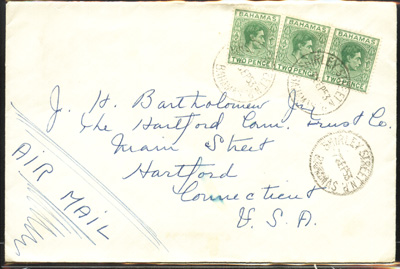 BAHAMAS BAHAMAS BAHAMAS
TWO PENCE TWO PENCE TWO PENCE
J. H. Bartholomew Jr.
The Hartford Conn. Trust Co.
Main Street
Hartford
Connecticut
U. S. A.
AIR MAIL
SHIRLEY STREET N.P.
BAHAMAS